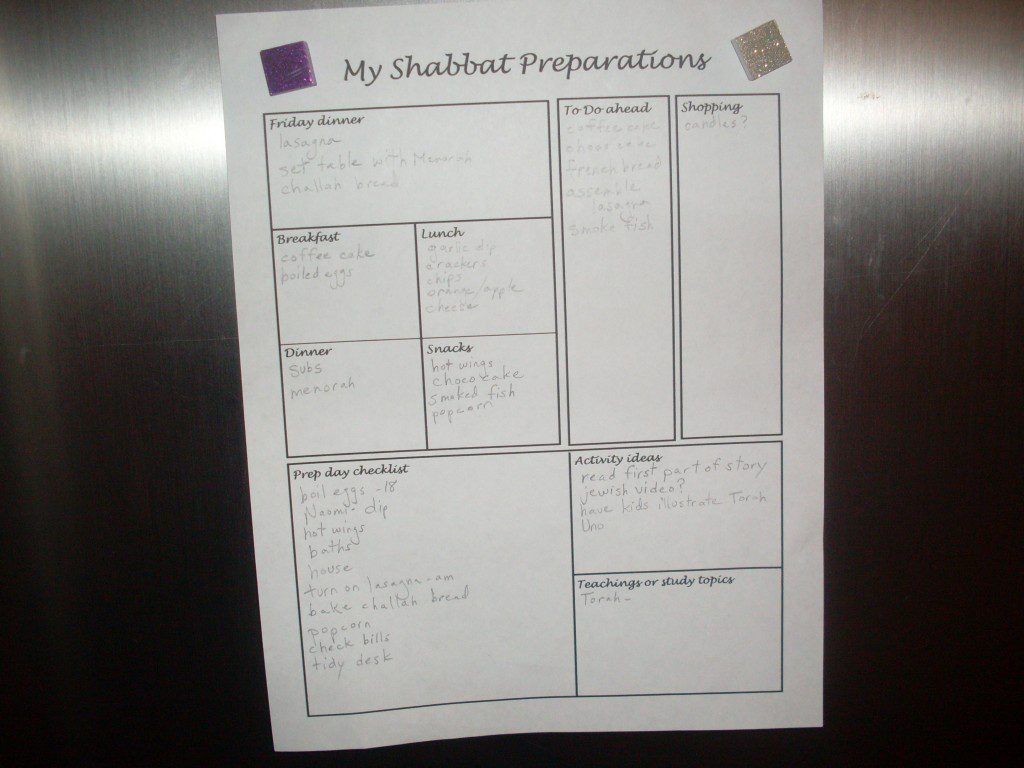 My Shabbat Preparations
Friday dinner
lasagna
set table with Menorah
challah bread
Breakfast
coffee cake
boiled eggs
Lunch
garlic dip
crackers
chips
orange/apple
cheese
Dinner
subs
menorah
Snacks
hot wings
choco cake
smoked fish
popcorn
To Do ahead
coffee cake
choco cake
french bread
assemble
lasagna
smoke fish
Shopping
candles?
Prep day checklist
boil eggs -18
Naomi- dip
hot wings
baths
house
turn on lasagna-am
bake challah bread
popcorn
check bills
tidy desk
Activity ideas
read first part of story
jewish video?
have kids illustrate Torah
Uno
Teachings or study topics
Torah-